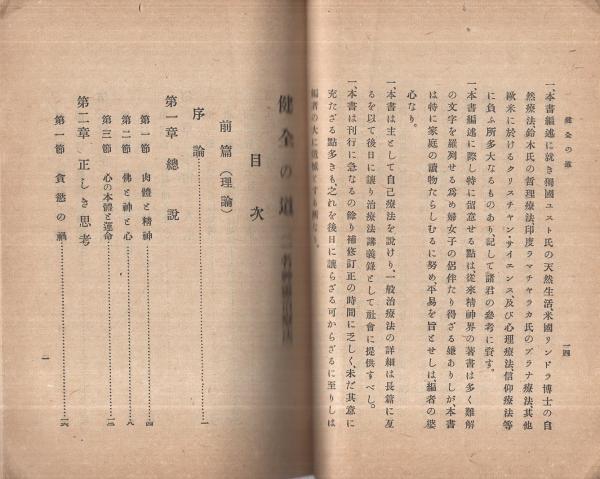 健全の道
一四
一、本書編述に就き獨國ユスト氏の天然生活、米國リンドラ博士の自
然療法、鈴木氏の哲理療法、印度ラマチャラカ氏のプラナ療法、其他
歐米に於けるクリスチャン・サイエンス、及び心理療法、信仰療法等
に負ふ所多大なるものあり、記して諸君の參考に資す。
一、本書編述に際し特に留意せる點は、從來精神界の著書は多く難解
の文字を羅列せる爲め婦女子の侶伴たり得ざる嫌ありしが、本書
は特に家庭の讀物たらしむるに努め、平易を旨とせしは、編者の婆
心なり。
一、本書は主として自己療法を說けり、一般治療法の詳細は長篇に亙
るを以て後日に讓り治療法講義錄として社會に提供すべし。
一、本書は刊行に急なるの餘り補修訂正の時間に乏しく、未だ其意に
充たざる點多きも、之れを後日に讓らざる可からざるに至りしは
編者の大に遺憾とする所なり。
健全の道
目次
前篇(理論)
序論……一
第一章 總說
第一節 肉體と精神……四
第二節 佛と神と心……八
第三節 心の本體と運命……
第二章 正しき思考
第一節 貪慾の禍……一六
一